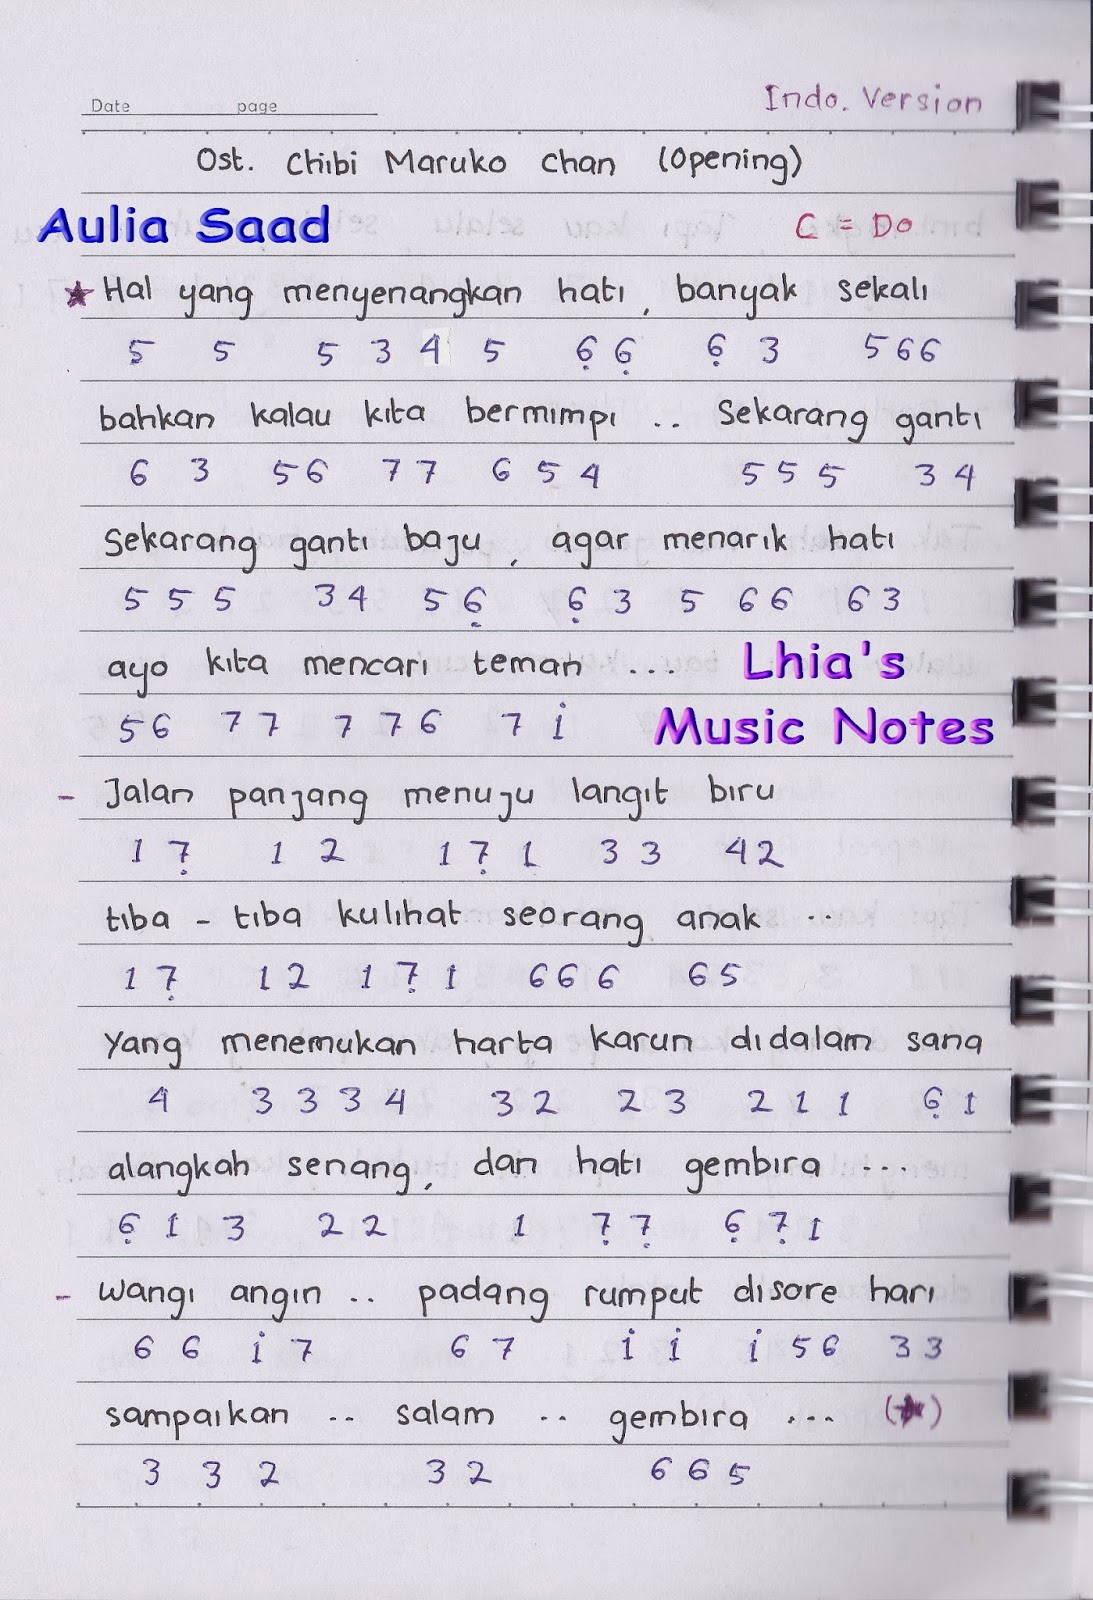 Date page
Indo. Version
Ost. Chibi Maruko Chan (Opening)
Aulia Saad
C = Do
★ Hal yang menyenangkan hati, banyak sekali
5 5 5 3 4 5 6̣ 6̣ 6̣ 3 5 6 6
bahkan kalau kita bermimpi .. Sekarang ganti
6 3 5 6 7 7 6 5 4 5 5 5 3 4
Sekarang ganti baju, agar menarik hati
5 5 5 3 4 5 6̣ 6̣ 3 5 6 6 6 3
ayo kita mencari teman ...
Lhia's
5 6 7 7 7 7 6 7 1̇
Music Notes
- Jalan panjang menuju langit biru
1 7̣ 1 2 1 7̣ 1 3 3 4 2
tiba - tiba kulihat seorang anak ..
1 7̣ 1 2 1 7̣ 1 6 6 6 6 5
Yang menemukan harta karun didalam sana
4 3 3 3 4 3 2 2 3 2 1 1 6̣ 1
alangkah senang, dan hati gembira ...
6̣ 1 3 2 2 1 7̣ 7̣ 6̣ 7̣ 1
- Wangi angin .. padang rumput disore hari
6 6 1̇ 7 6 7 1̇ 1̇ 1̇ 5 6 3 3
sampaikan .. salam .. gembira ... (★)
3 3 2 3 2 6 6 5